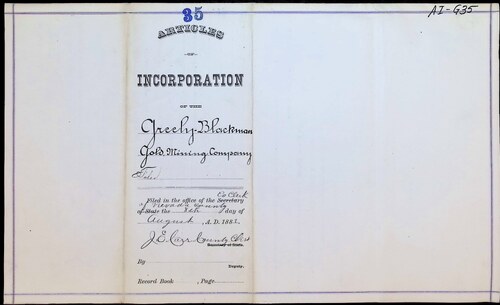 35
AI-G35
ARTICLES
OF
INCORPORATION
OF THE
Greely-Blackman
Gold Mining Company
Filed
Co Clerk
Filed in the office of the Secretary
of Nevada County
of State the 8th day of
August, A.D. 1883.
J.E. Carr County Clk
Secretary of State.
By
Deputy.
Record Book , Page